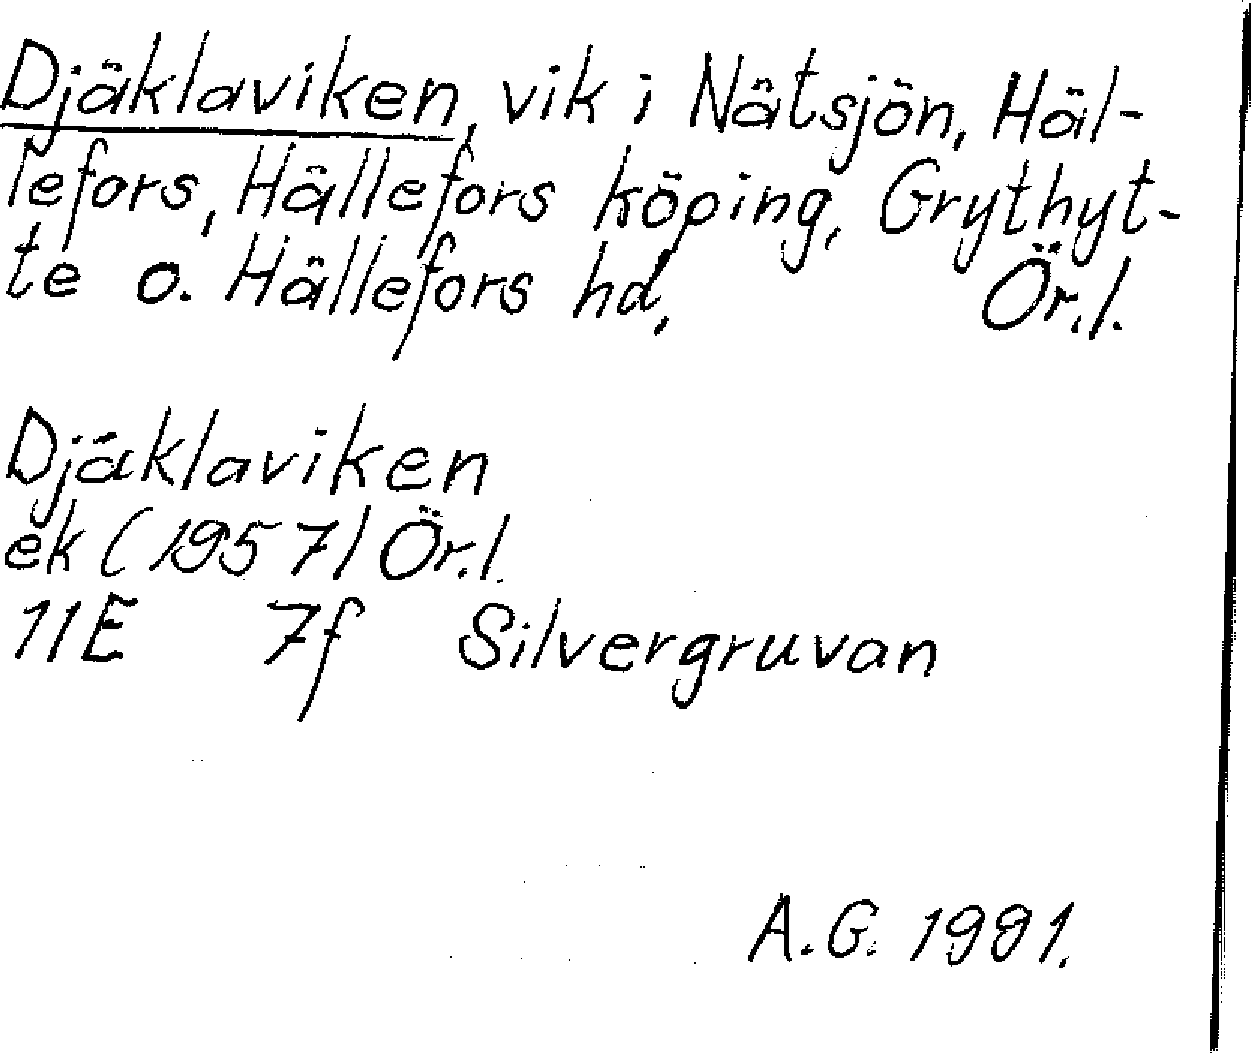 Djäklaviken, vik i Nätsjön, Häl-
lefors, Hällefors köping, Grythyt-
te o. Hällefors hd, Ör.l.
Djäklaviken
ek (1957) Ör.l.
11E 7f Silvergruvan
A.G. 1991.